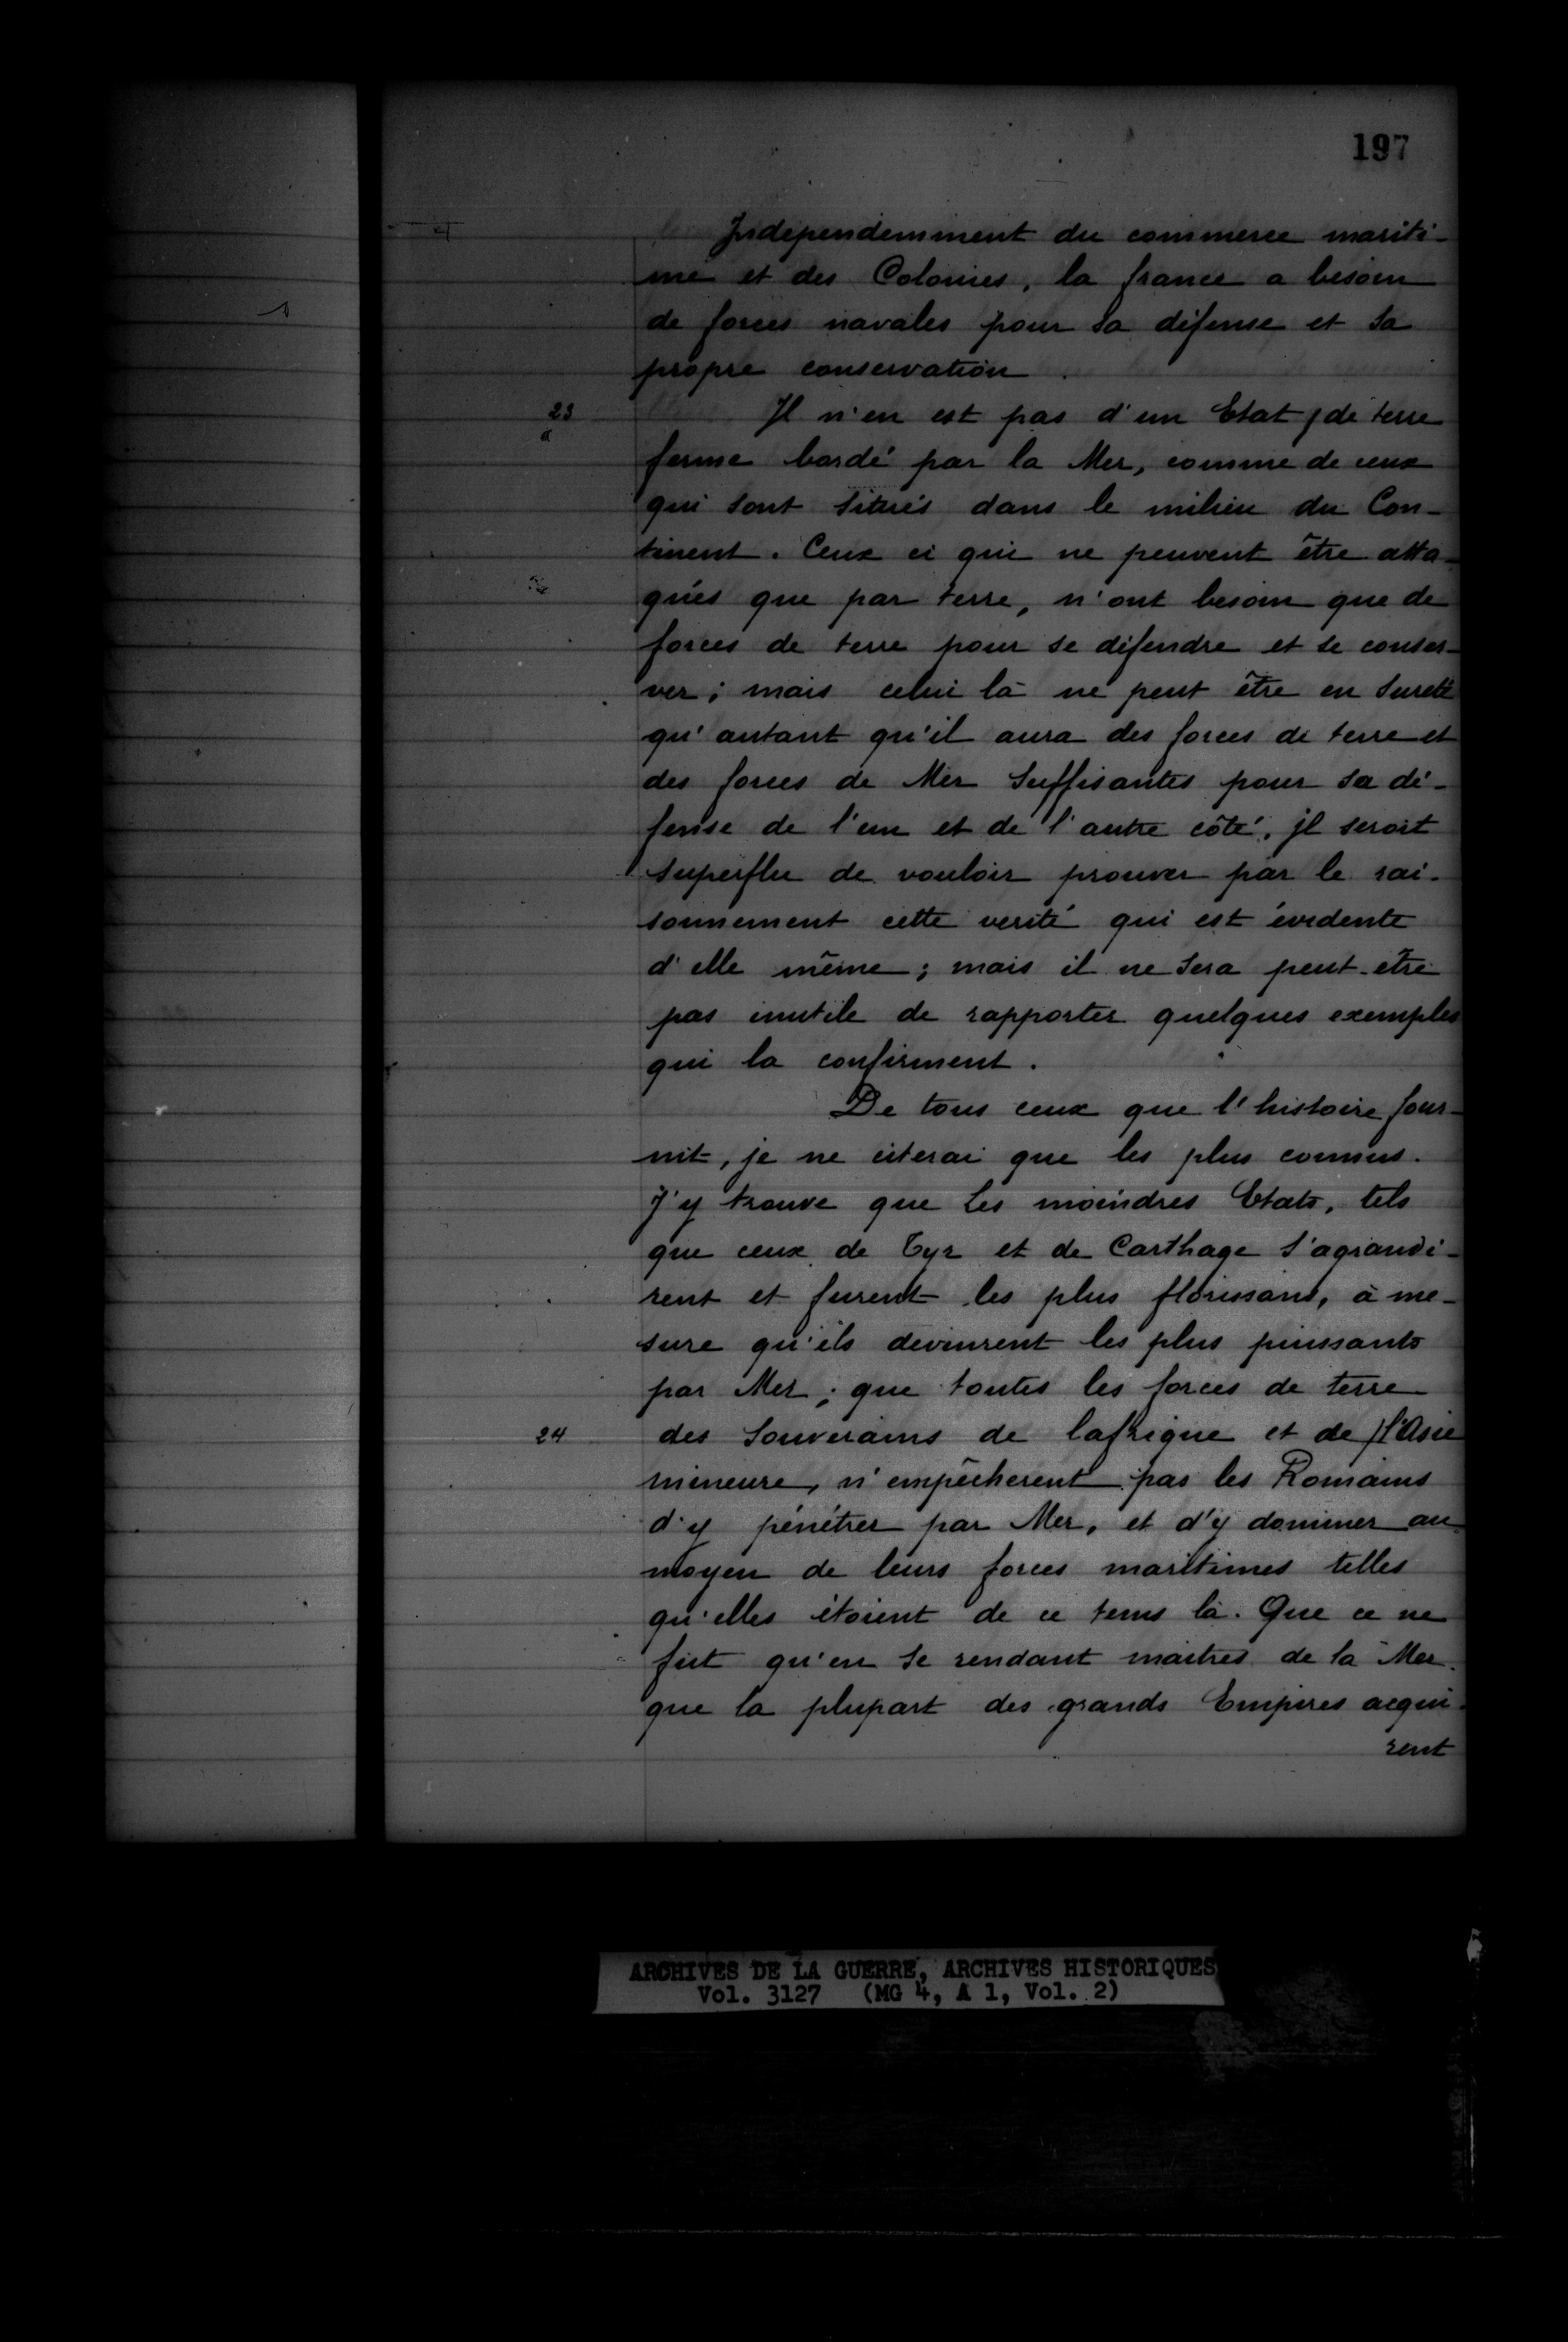 197
Independemment du commerce mariti-
me et des Colonies, la france a besoin
de forces navales pour sa défense et sa
propre conservation.
23 Il n'en est pas d'un Etat / de terre
ferme bordé par la Mer, comme de ceux
qui sont situés dans le milieu du Con-
tinent. Ceux ci qui ne peuvent être atta-
qués que par terre, n'ont besoin que de
forces de terre pour se défendre et se conser-
ver ; mais celui là ne peut être en sureté
qu'autant qu'il aura des forces de terre et
des forces de Mer suffisantes pour sa dé-
fense de l'un et de l'autre côté, jl seroit
superflu de vouloir prouver par le rai-
sonnement cette verité qui est évidente
d'elle même ; mais il ne sera peut-être
pas inutile de rapporter quelques exemples
qui la confirment.
De tous ceux que l'histoire four-
nit, je ne citerai que les plus connus.
J'y trouve que les moindres Etats, tels
que ceux de Tyr et de Carthage s'agrandi-
rent et furent les plus florissans, à me-
sure qu'ils devinrent les plus puissants
par Mer ; que toutes les forces de terre
24 des Souverains de lafrique et de / l'Asie
mineure, n'empêcherent pas les Romains
d'y pénétrer par Mer, et d'y dominer au
moyen de leurs forces maritimes telles
qu'elles étoient de ce tems là. Que ce ne
fut qu'en se rendant maitres de la Mer
que la plupart des grands Empires acqui-
rent
ARCHIVES DE LA GUERRE, ARCHIVES HISTORIQUES
Vol. 3127 (MG 4, A 1, Vol. 2)